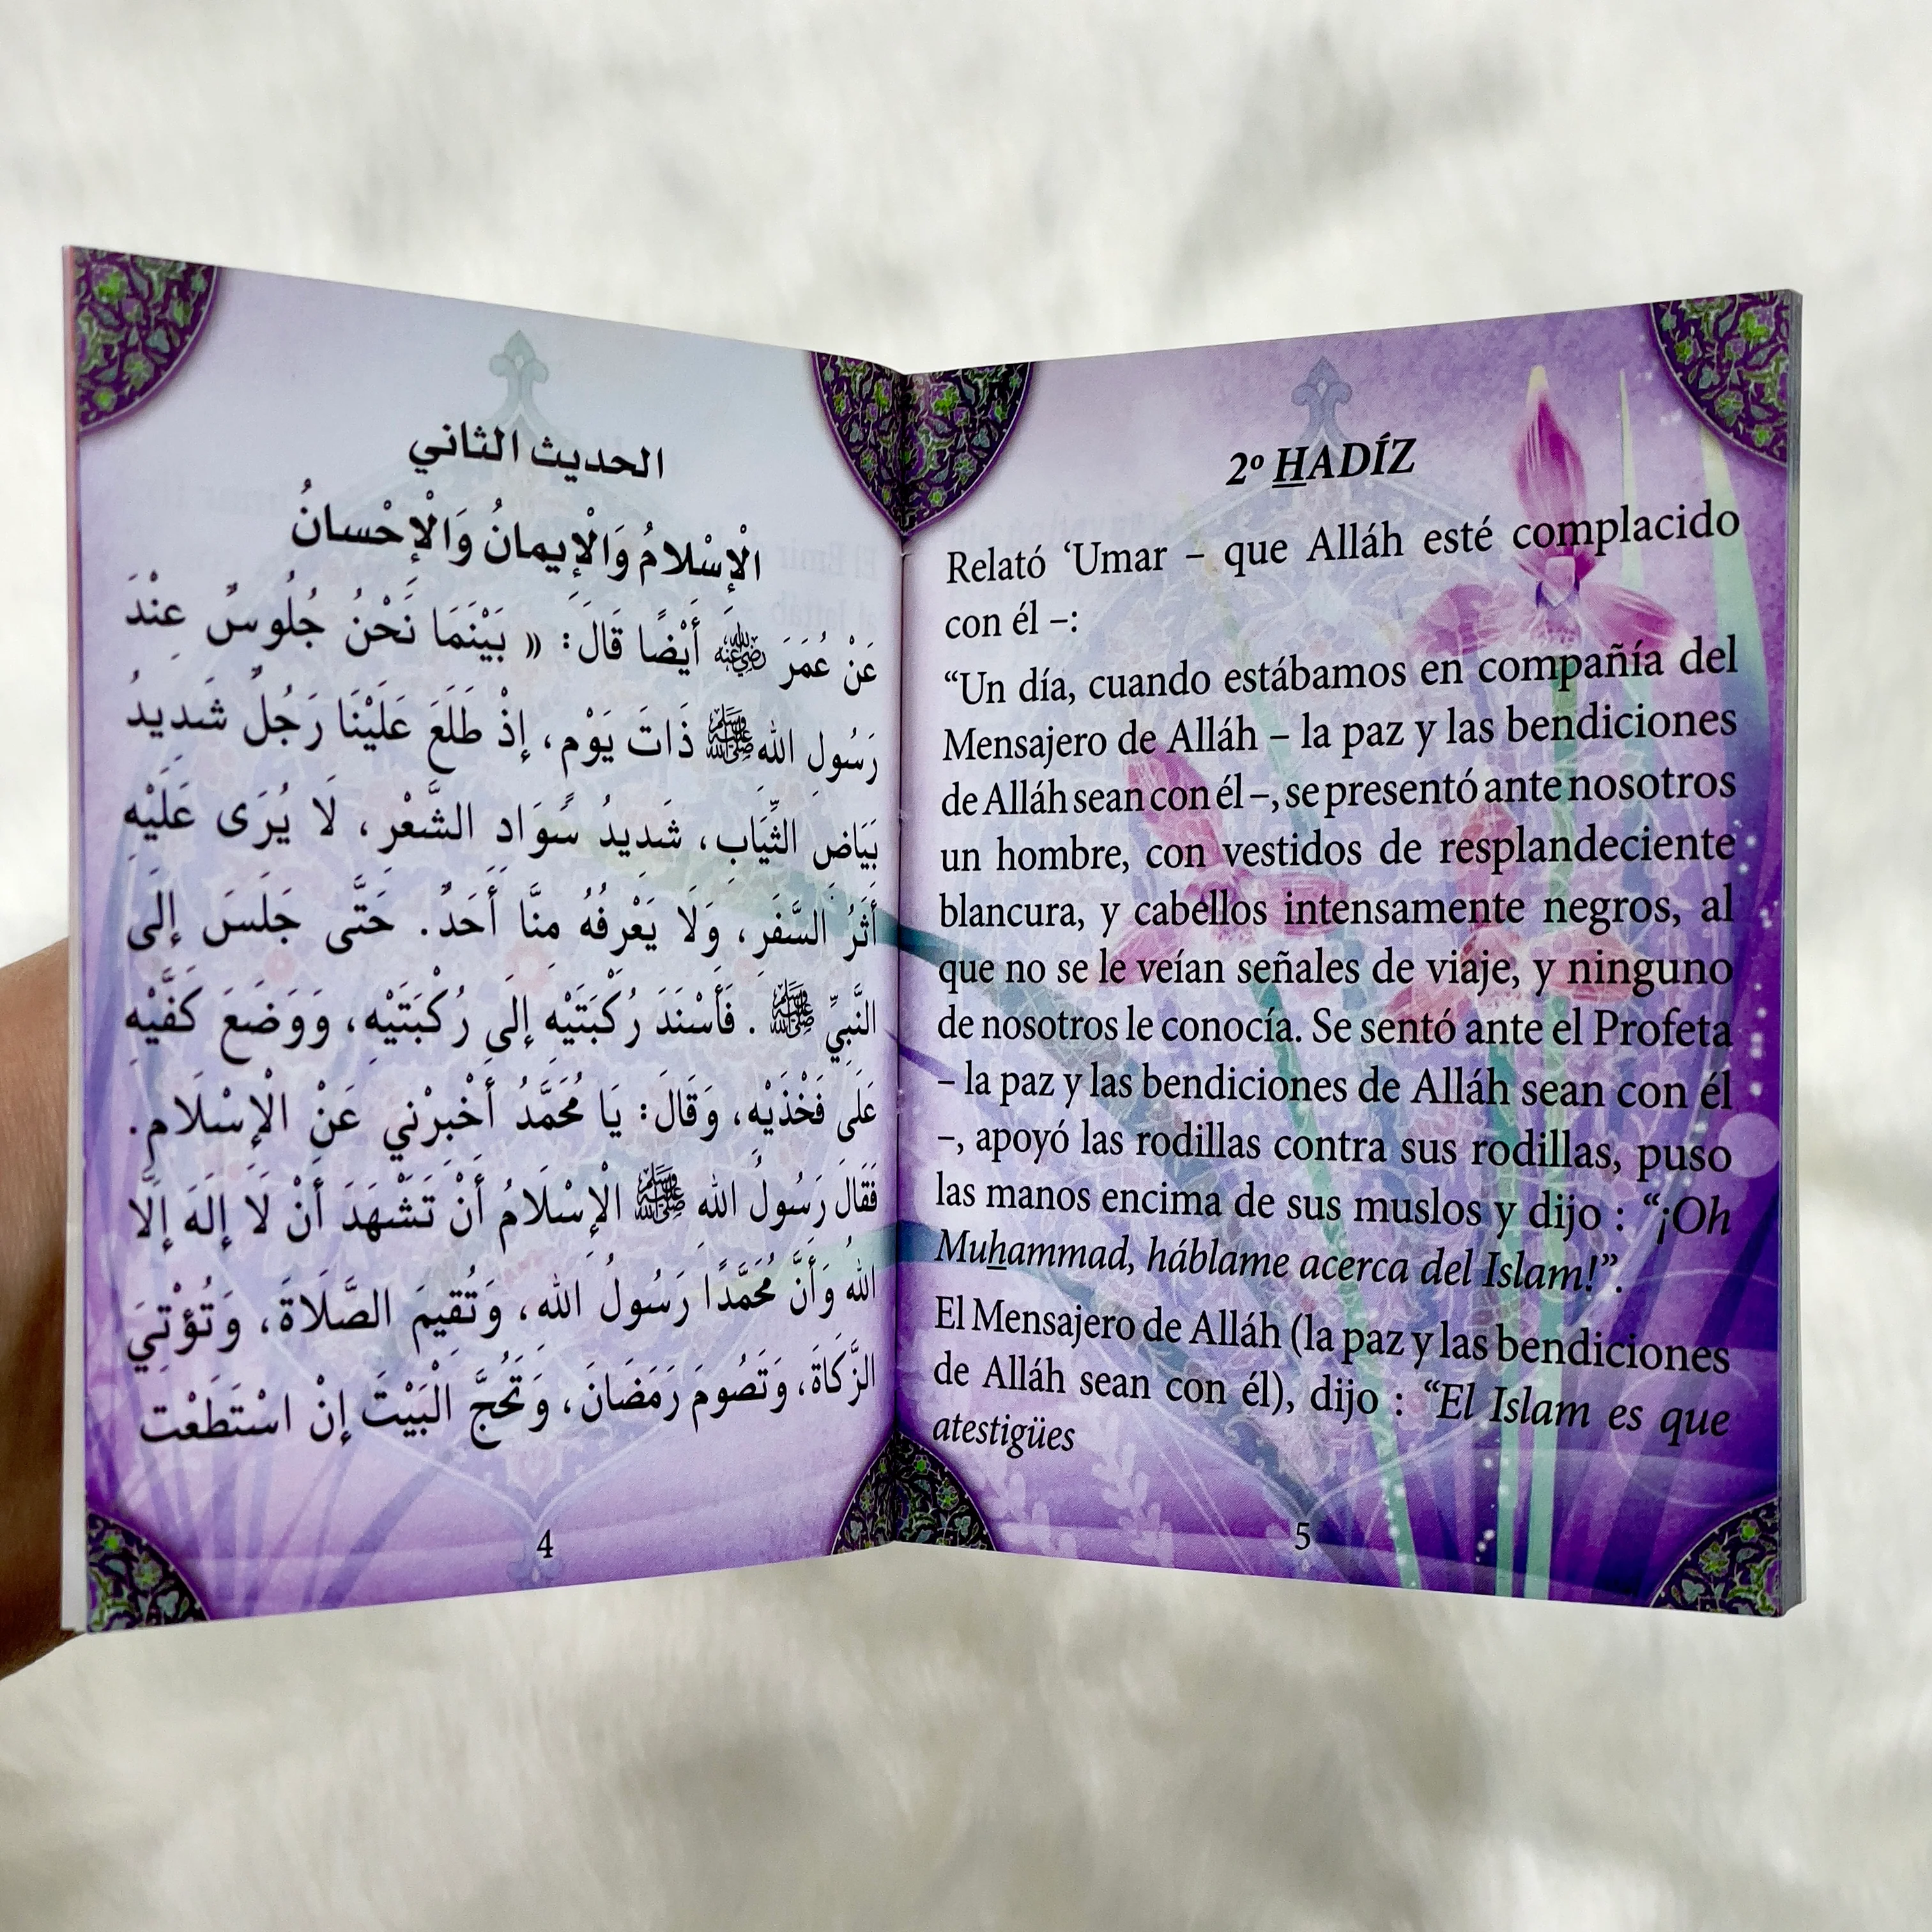 الحديث الثاني
الْإِسْلامُ وَالْإِيمانُ وَالْإِحْسانُ
عَنْ عُمَرَ رضي الله عنه أَيْضًا قَالَ: « بَيْنَمَا نَحْنُ جُلُوسٌ عِنْدَ
رَسُولِ اللهِ ﷺ ذَاتَ يَوْمٍ، إِذْ طَلَعَ عَلَيْنَا رَجُلٌ شَدِيدُ
بَيَاضِ الثِّيَابِ، شَدِيدُ سَوَادِ الشَّعْرِ، لَا يُرَى عَلَيْهِ
أَثَرُ السَّفَرِ، وَلَا يَعْرِفُهُ مِنَّا أَحَدٌ. حَتَّى جَلَسَ إِلَى
النَّبِيِّ ﷺ . فَأَسْنَدَ رُكْبَتَيْهِ إِلَى رُكْبَتَيْهِ، وَوَضَعَ كَفَّيْهِ
عَلَى فَخْذَيْهِ، وَقَالَ: يَا مُحَمَّدُ أَخْبِرْنِي عَنْ الْإِسْلَامِ.
فَقَالَ رَسُولُ اللهِ ﷺ الْإِسْلَامُ أَنْ تَشْهَدَ أَنْ لَا إِلَهَ إِلَّا
اللهُ وَأَنَّ مُحَمَّدًا رَسُولُ اللهِ، وَتُقِيمَ الصَّلَاةَ، وَتُؤْتِيَ
الزَّكَاةَ، وَتَصُومَ رَمَضَانَ، وَتَحُجَّ الْبَيْتَ إِنْ اسْتَطَعْت
4
2º HADÍZ
Relató ‘Umar – que Alláh esté complacido
con él –:
“Un día, cuando estábamos en compañía del
Mensajero de Alláh – la paz y las bendiciones
de Alláh sean con él –, se presentó ante nosotros
un hombre, con vestidos de resplandeciente
blancura, y cabellos intensamente negros, al
que no se le veían señales de viaje, y ninguno
de nosotros le conocía. Se sentó ante el Profeta
– la paz y las bendiciones de Alláh sean con él
–, apoyó las rodillas contra sus rodillas, puso
las manos encima de sus muslos y dijo : “¡Oh
Muhammad, háblame acerca del Islam!”.
El Mensajero de Alláh (la paz y las bendiciones
de Alláh sean con él), dijo : “El Islam es que
atestigües
5